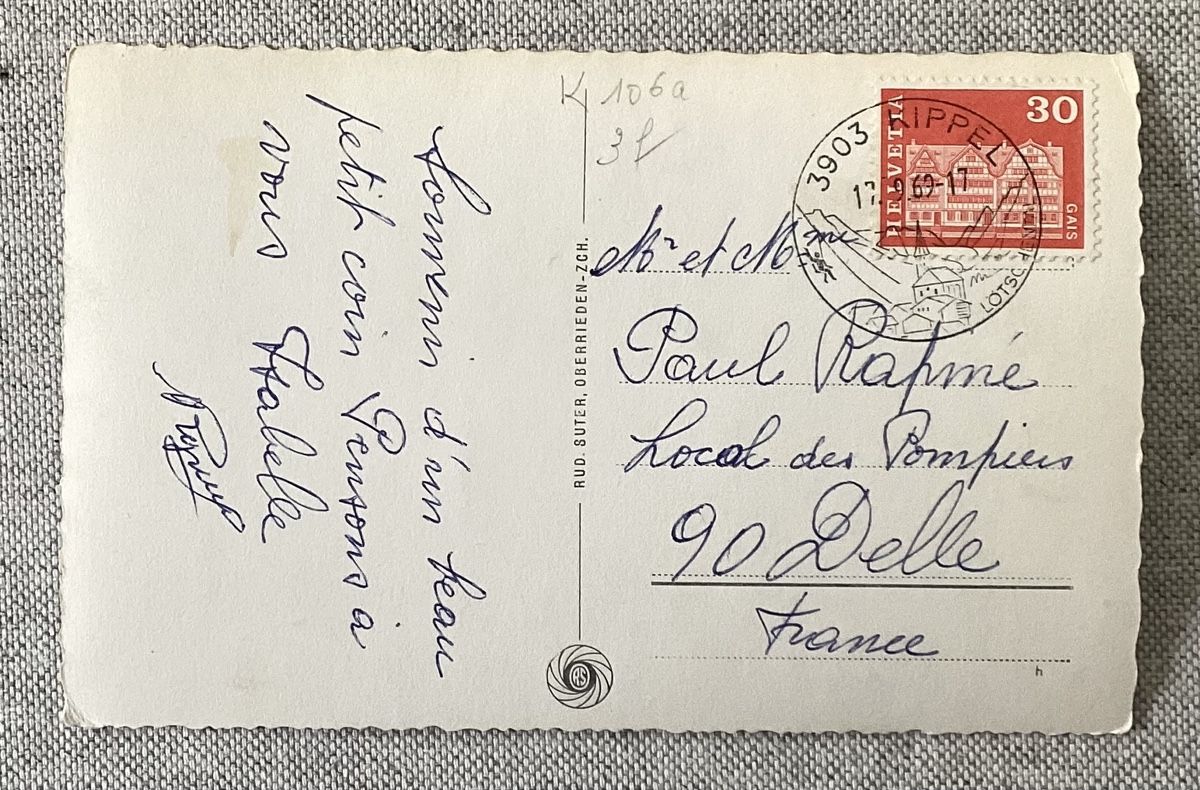 Souvenir d'un beau
petit coin Pensons à
vous Isabelle
K 106a
3f
RUD. SUTER, OBERRIEDEN-ZCH.
RS
HELVETIA
30
GAIS
3903 KIPPEL
-17
LÖTSCHENTAL
Mr et Mme
Paul Rapiné
Local des Pompiers
90 Delle
France